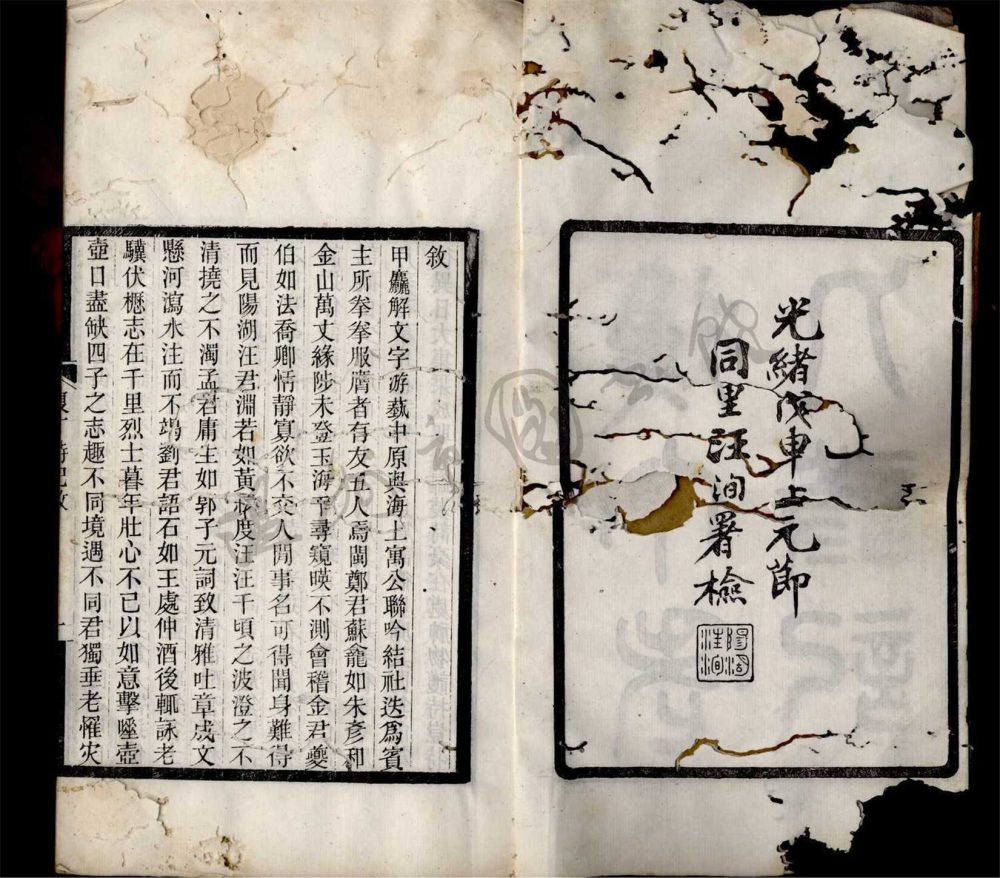 光緒戊申上元節
同里汪洵署檢
陽湖汪洵
敘
甲麤解文字游藝中原與海上寓公聯吟結社迭爲賓
主所拳拳服膺者有友五人焉閩鄭君蘇龕如朱彥和
金山萬丈緣陟未登玉海千尋窺暎不測會稽金君夔
伯如法喬卿恬靜寡欲不交人閒事名可得聞身難得
而見陽湖汪君淵若如黃叔度汪汪千頃之波澄之不
清撓之不濁孟君庸生如郭子元詞致清雅吐章成文
懸河瀉水注而不竭劉君語石如王處仲酒後輒詠老
驥伏櫪志在千里烈士暮年壯心不已以如意擊唾壺
壺口盡缺四子之志趣不同境遇不同君獨垂老罹灾